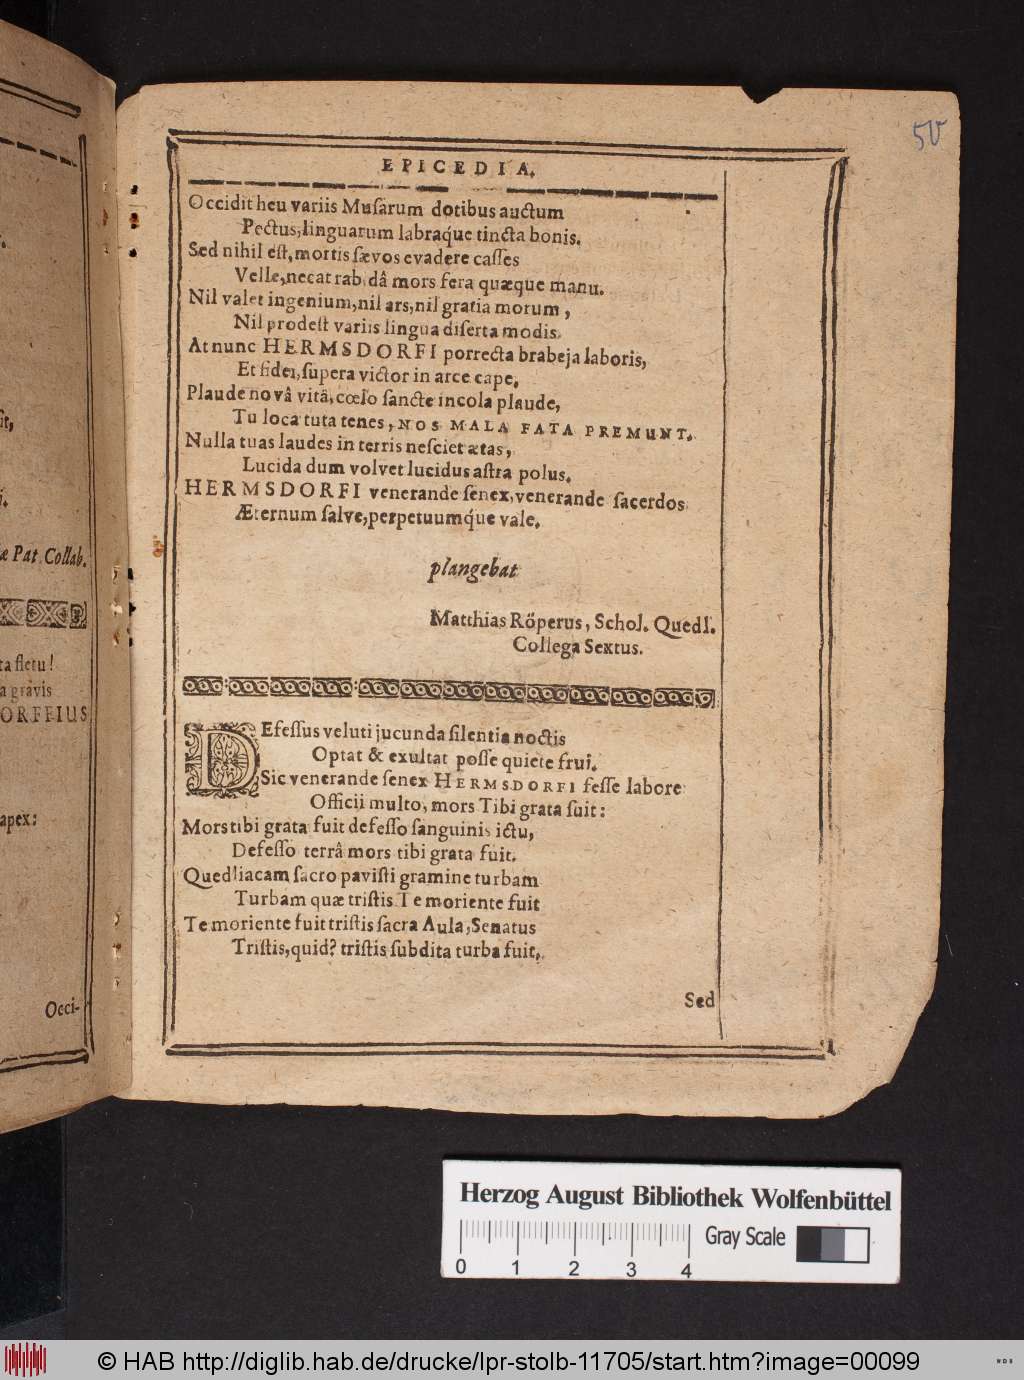 t.
sit,
i.
æ Pat. Collab.
ta fletu!
a gravis
ORFFIUS
apex:
Occi-
50
EPICEDIA.
Occidit heu variis Muſarum dotibus auctum
Pectus, linguarum labraq́ue tincta bonis.
Sed nihil eſt, mortis ſævos evadere caſſes
Velle, necat rabidâ mors fera quæque manu.
Nil valet ingenium, nil ars, nil gratia morum,
Nil prodeſt variis lingua diſerta modis.
At nunc HERMSDORFI porrecta brabeja laboris,
Et fidei, ſupera victor in arce cape.
Plaude novâ vitâ, cœlo ſancte incola plaude,
Tu loca tuta tenes, NOS MALA FATA PREMUNT.
Nulla tuas laudes in terris neſciet ætas,
Lucida dum volvet lucidus aſtra polus.
HERMSDORFI venerande ſenex, venerande ſacerdos
Æternum ſalve, perpetuumq́ue vale.
plangebat
Matthias Röperus, Schol. Quedl.
Collega Sextus.
DEfeſſus veluti jucunda ſilentia noctis
Optat & exultat poſſe quiete frui.
Sic venerande ſenex HERMSDORFI feſſe labore
Officii multo, mors Tibi grata fuit:
Mors tibi grata fuit defeſſo ſanguinis ictu,
Defeſſo terrâ mors tibi grata fuit.
Quedliacam ſacro paviſti gramine turbam
Turbam quæ triſtis Te moriente fuit
Te moriente fuit triſtis ſacra Aula, Senatus
Triſtis, quid? triſtis ſubdita turba fuit.
Sed
Herzog August Bibliothek Wolfenbüttel
Gray Scale
0 1 2 3 4
© HAB http://diglib.hab.de/drucke/lpr-stolb-11705/start.htm?image=00099
WDB